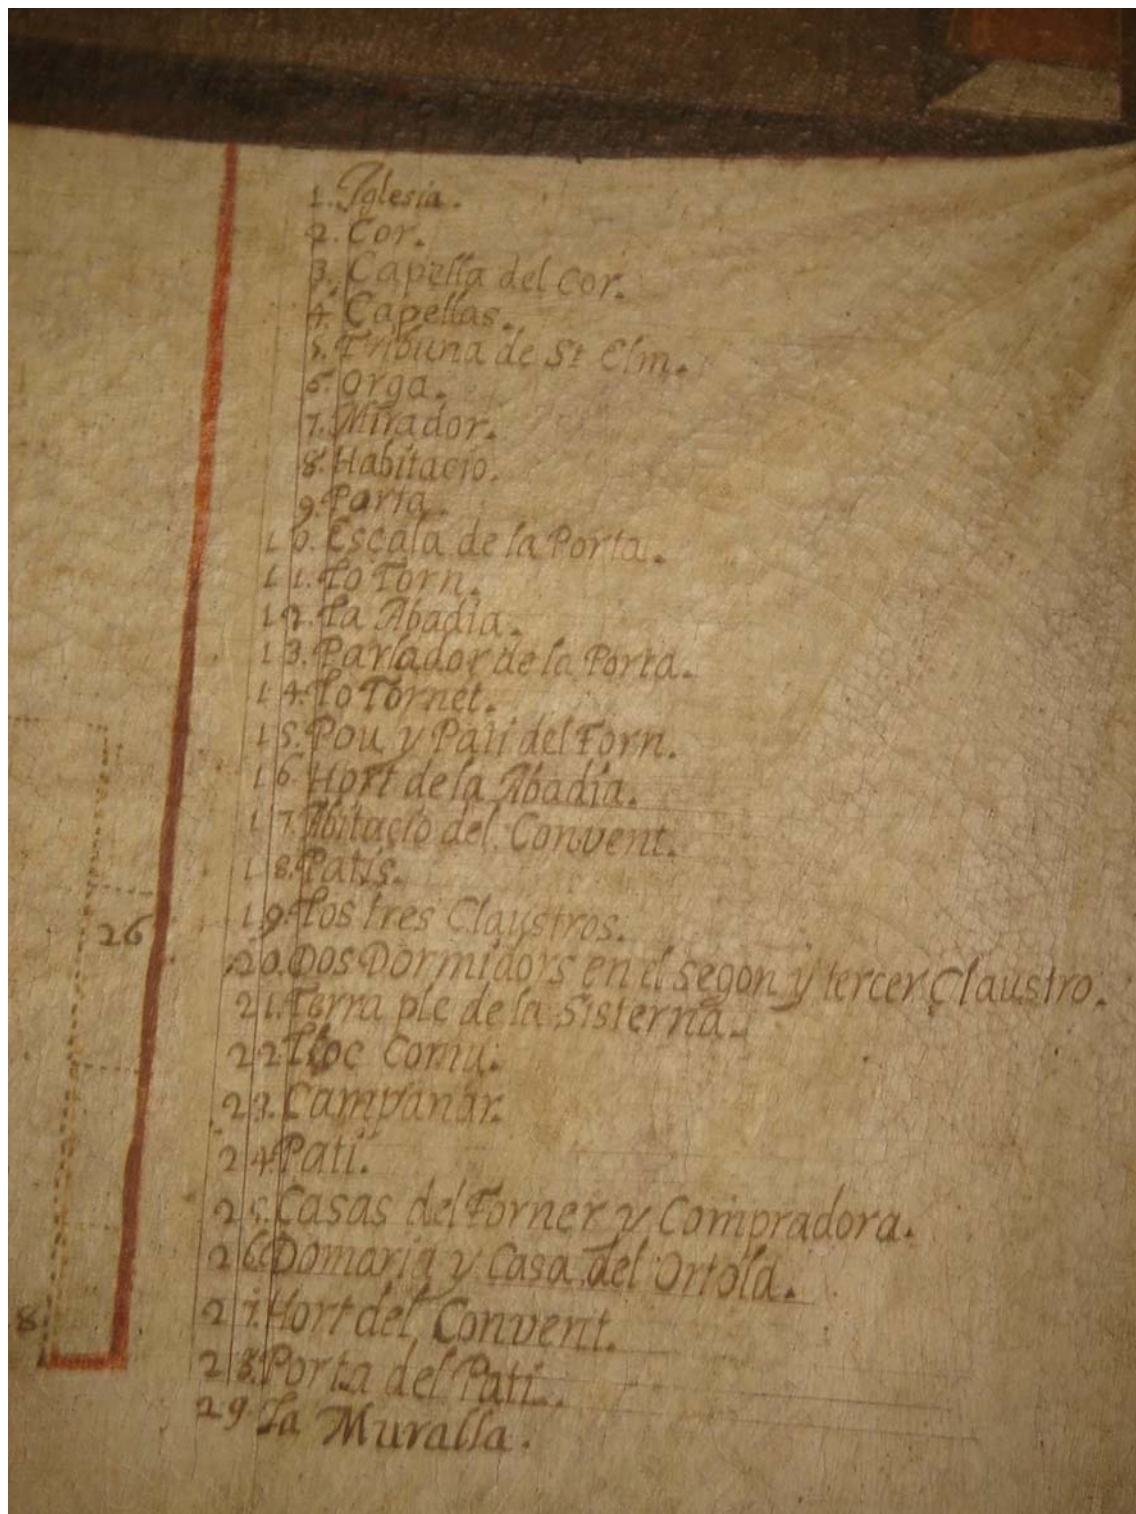 1. Iglesia.
2. Cor.
3. Capella del Cor.
4. Capellas.
5. Tribuna de St Elm.
6. Orga.
7. Mirador.
8. Habitacio.
9. Porta.
10. Escala de la Porta.
11. Lo Torn.
12. La Abadia.
13. Parlador de la Porta.
14. Lo Tornet.
15. Pou y Pati del Forn.
16. Hort de la Abadia.
17. Abitacio del Convent.
18. Patis.
19. Los tres Claustros.
26
20. Dos Dormidors en el segon y tercer Claustro.
21. Terra ple de la Sisterna.
22. Lloc Comu.
23. Campanar.
24. Pati.
25. Casas del Forner y Compradora.
26. Domaria y Casa del Ortola.
27. Hort del Convent.
8
28. Porta del Pati.
29. La Muralla.